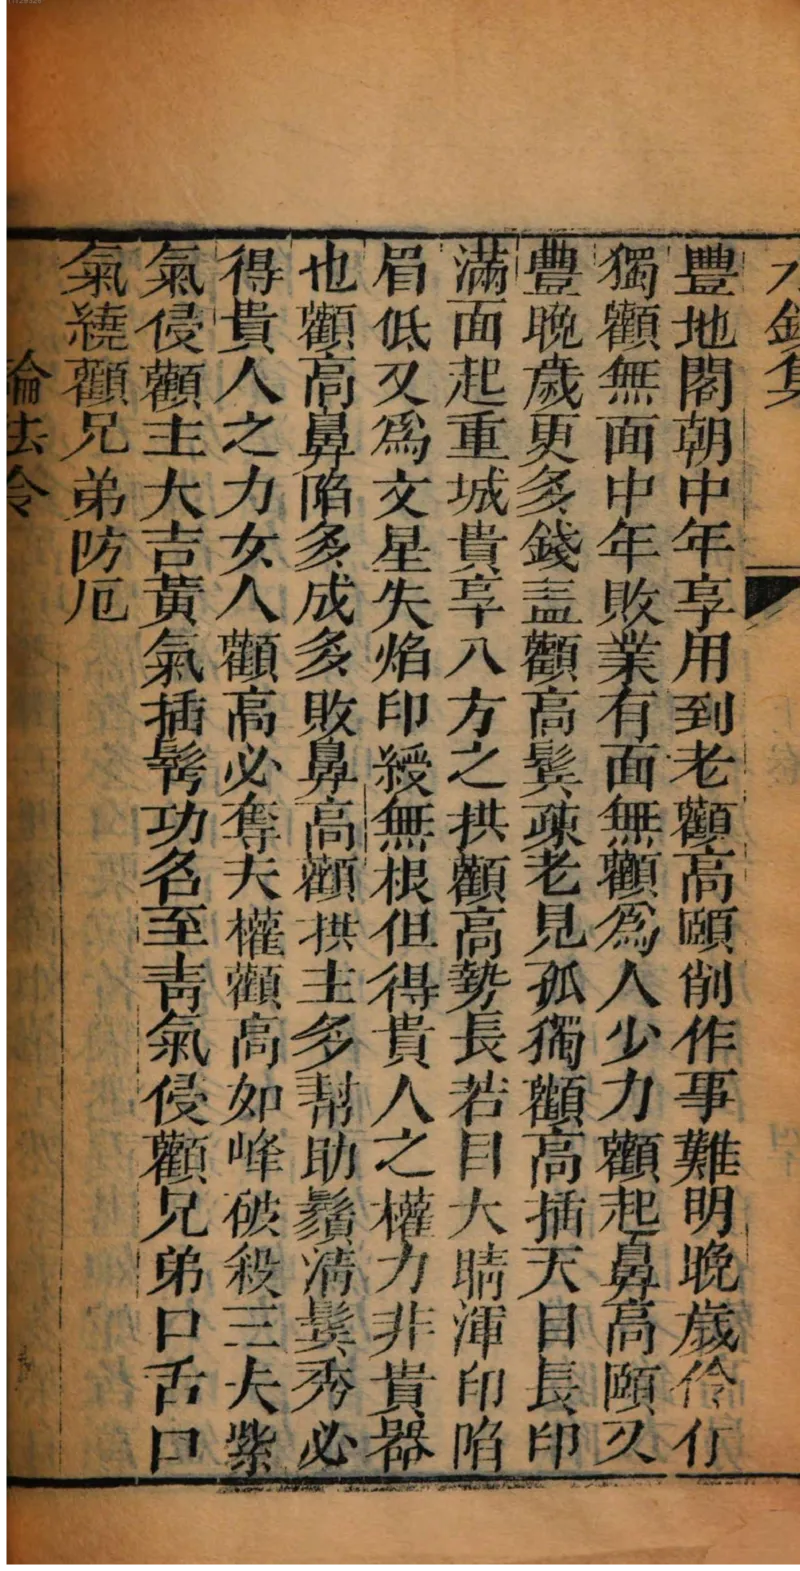 水鏡集
豐地閣朝中年享用到老顴高頤削作事難明晚歲伶仃
獨顴無面中年敗業有面無顴為人少力顴起鼻高頤又
豐晚歲更多錢盖顴高鬓疎老見孤獨顴高插天目長印
滿面起重城貴享八方之拱顴高勢長若目大睛渾印陷
眉低又為文星失焰印綬無根但得貴人之權力非貴器
也顴高鼻陷多成多敗鼻高顴拱主多幫助鬚淸鬓秀必
得貴人之力女人顴高必奪夫權顴高如峰破殺三夫紫
氣侵顴主大吉黃氣插髩功名至靑氣侵顴兄弟口舌口
氣繞顴兄弟防厄
論法令